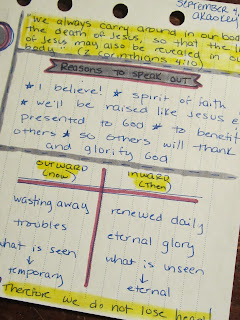 SEPTEMBER 4
we always carry around in our bod
the death of Jesus, so that the li
of Jesus may also be revealed in ou
body. (2 Corinthians 4:10)
Reasons to SPEAK OUT
* I believe! * spirit of faith
* we'll be raised like Jesus &
presented to God * to benefit
others * so others will thank
and glorify God
OUTWARD INWARD
(now) (Then)
wasting away renewed daily
troubles eternal glory
what is seen what is unseen
↓ ↓
temporary eternal
Therefore we do not lose heart